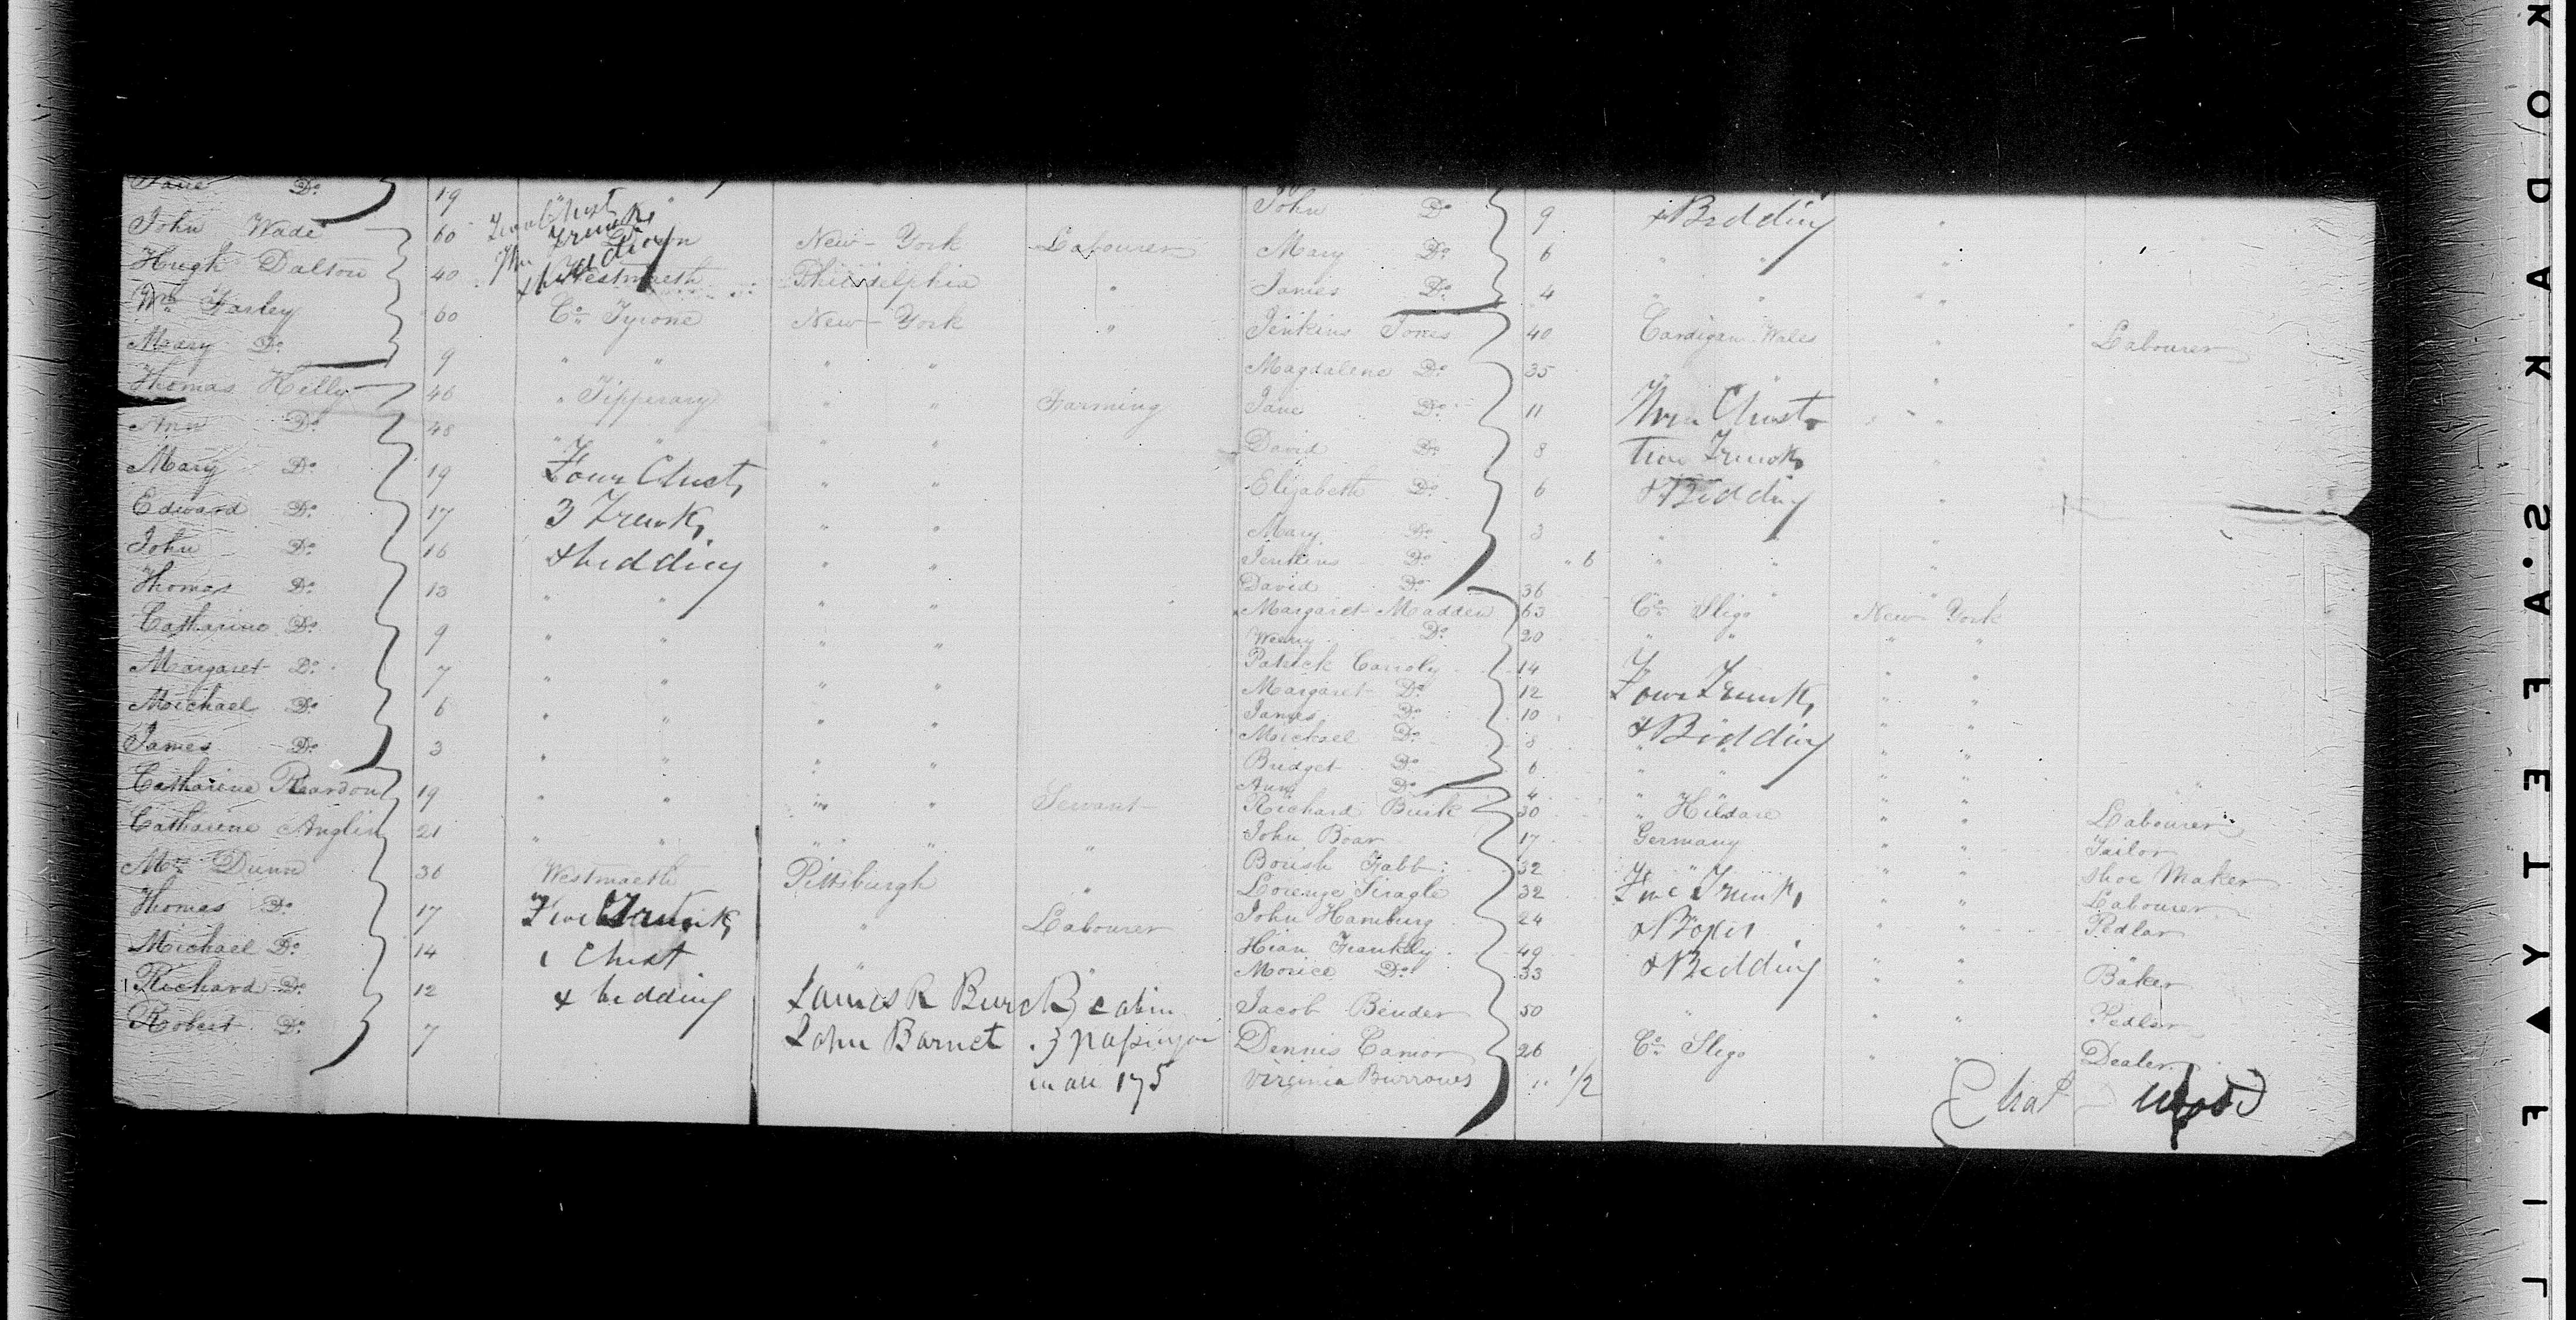 Jane Do 19 " "
John Wade 60 Down New-York Labourer
Hugh Dalton 40 Westmaeth Philadelphia "
Wm Farley 60 Co Tyrone New-York "
Mary Do 9 " " " "
Thomas Kelly 46 " Tipperary " " Farming
Ann Do 48 " " " "
Mary Do 19 Four Chest, " "
Edward Do 17 3 Trunk, " "
John Do 16 + bedding " "
Thomas Do 13 " " " "
Catharine Do 9 " " " "
Margaret Do 7 " " " "
Michael Do 6 " " " "
James Do 3 " " " "
Catharine Reardon 19 " " " " Servant
Catharine Anglin 21 " " " " "
Mrs Dunn 36 Westmaeth Pittsburgh "
Thomas Do 17 Trunk, " Labourer
Michael Do 14 1 Chest " "
Richard Do 12 + bedding James R Burch cabin
Robert Do 7 John Barnet 3 passenger
in all 175
John Do 9 + Bedding "
Mary Do 6 " " "
James Do 4 " " "
Jenkins Jones 40 Cardigan Wales " Labourer
Magdalene Do 35 " " "
Jane Do 11 Chest "
David Do 8 Two Trunk, "
Elizabeth Do 6 + Bedding "
Mary Do 3 " " "
Jenkins Do " 6 " " "
David Do 36 " " "
Margaret Madden 63 Co Sligo New York
Do 20 " " " "
Patrick Conoly 14 " " " "
Margaret Do 12 Four Trunk, " "
James Do 10 " "
Michael Do 8 + Bedding " "
Bridget Do 6 " " " "
Ann Do 4 " " " "
Richard Burk 30 " Kildare " " Labourer
John Boar 17 Germany " " Tailor
Borish Fabb 32 " " " Shoe Maker
Lorenze Siragle 32 Trunk, " " Labourer
John Hamburg 24 + Boxes " " Pedlar
Hian Frankly 49 " "
Morice Do 33 + Bedding " " Baker
Jacob Bender 50 " " " Pedlar
Dennis Connor 26 Co Sligo " " Dealer
Virginia Burrows " 1/2